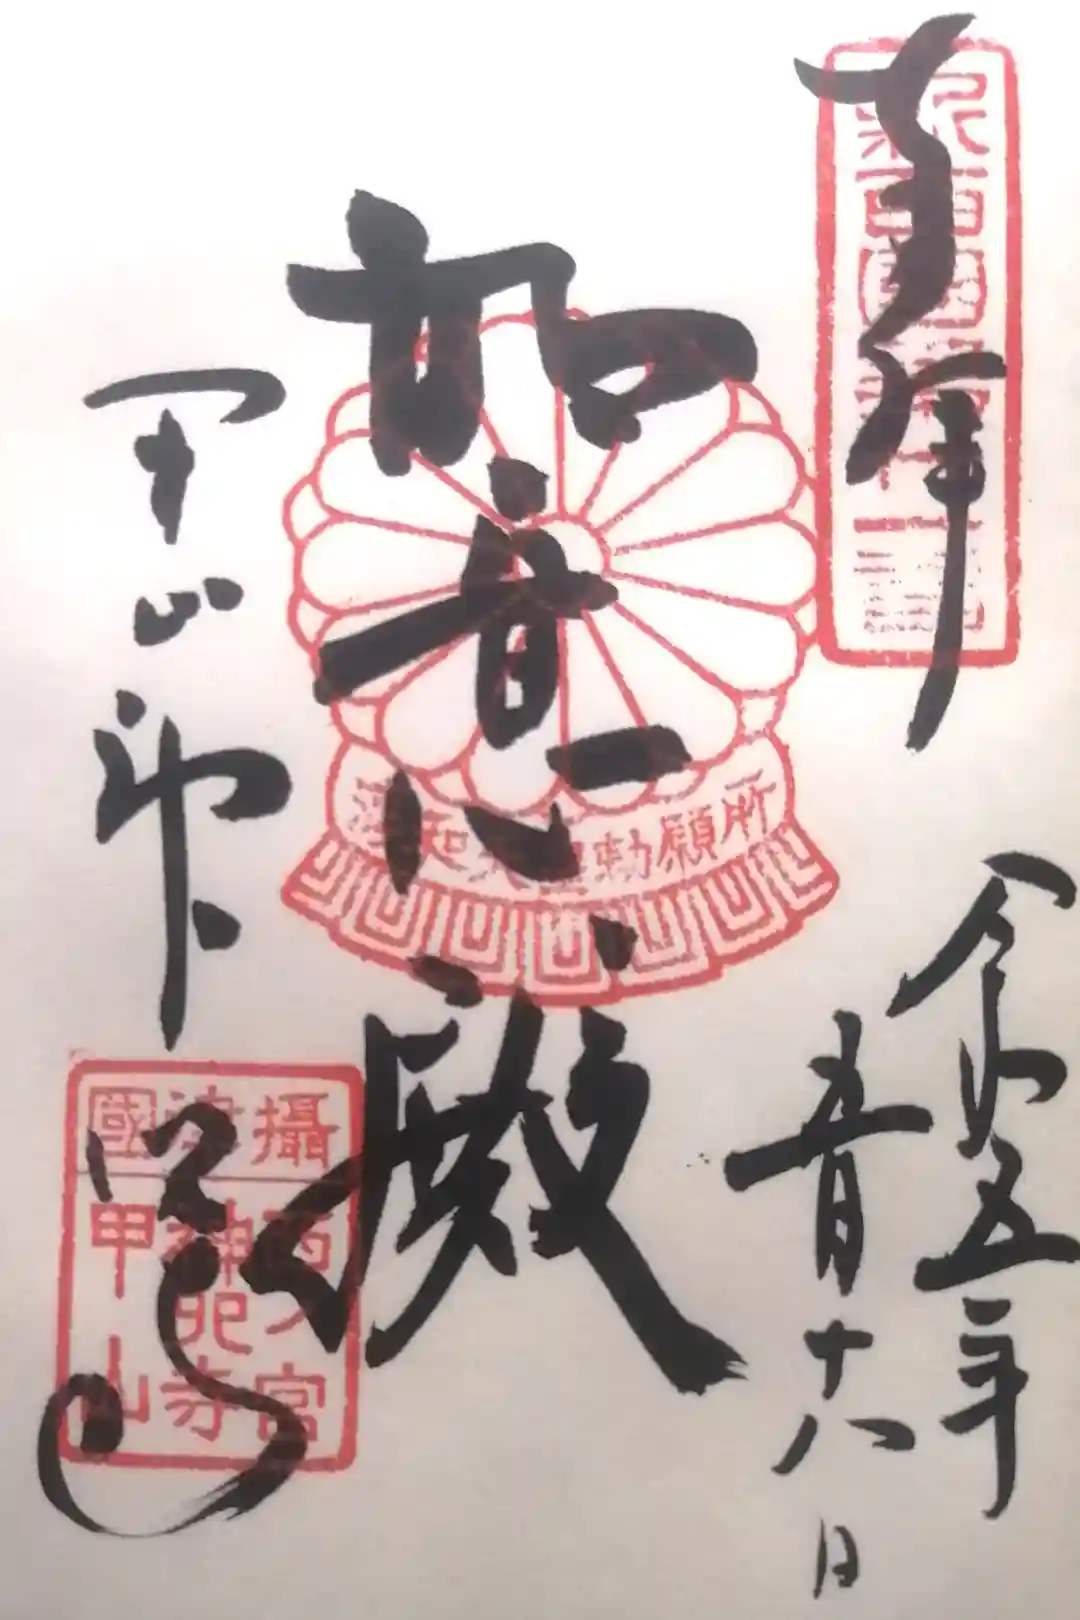 奉拝
令和五年
五月十八日
如意殿
淳和天皇勅願所
甲山神呪寺
攝津國
西ノ宮
神呪寺
甲山